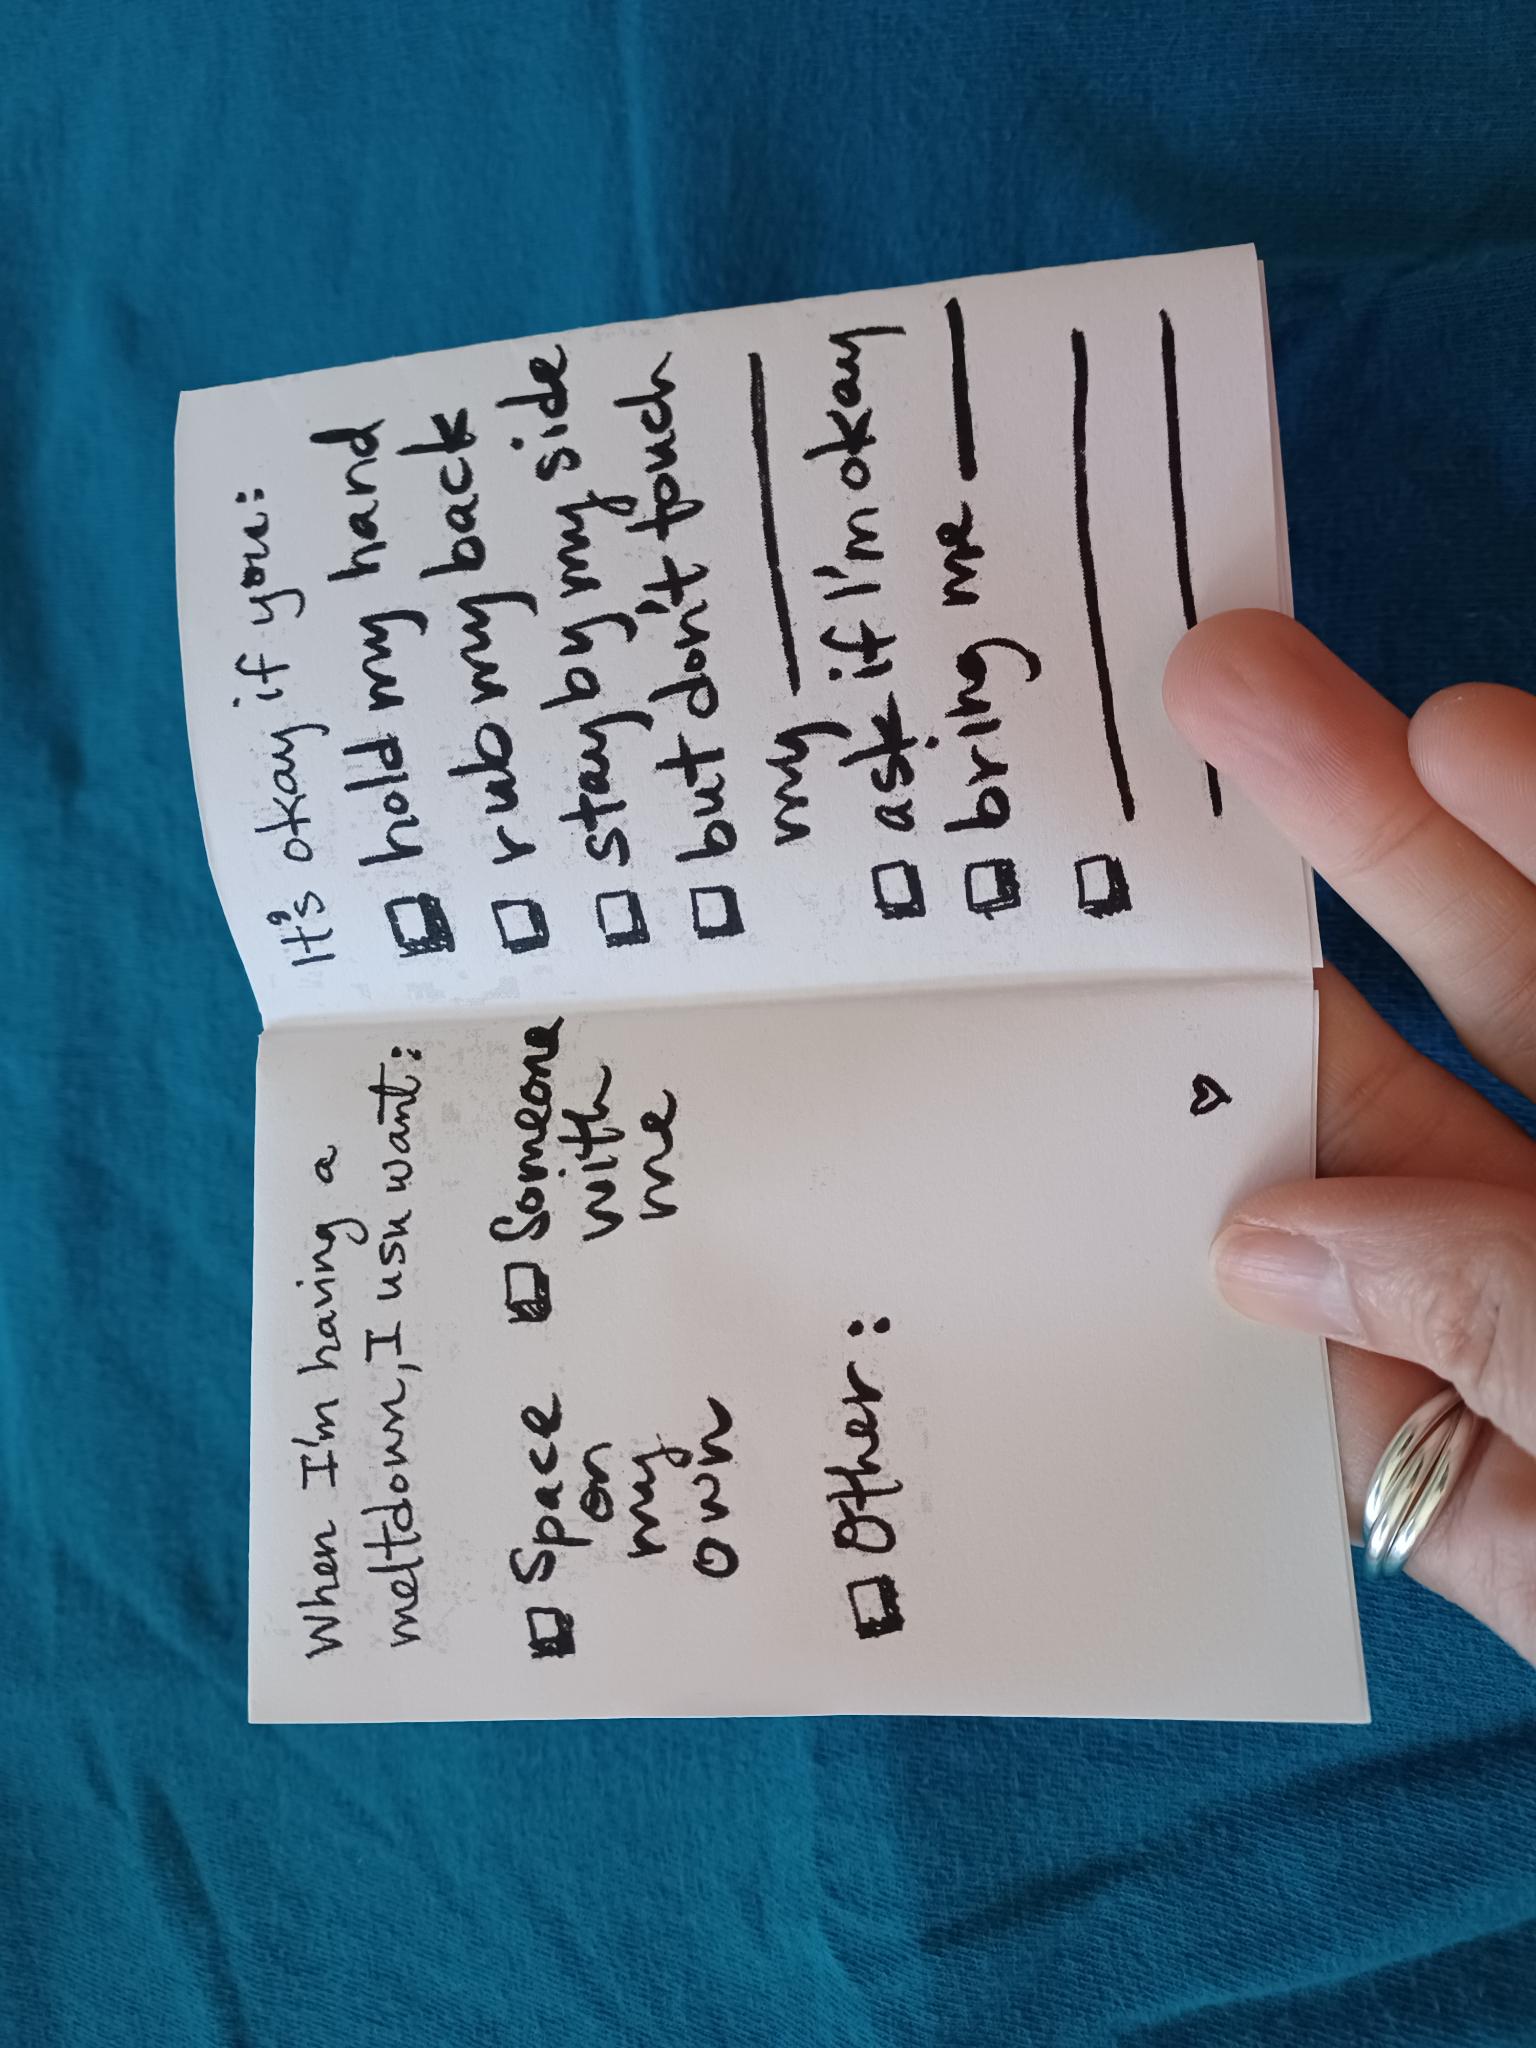 When I'm having a
meltdown, I usu want:
☐ Space
on
my
own
☐ Someone
with
me
☐ Other:
♡
It's okay if you:
☐ hold my hand
☐ rub my back
☐ stay by my side
☐ but don't touch
my ______
☐ ask if I'm okay
☐ bring me ____
☐ ______
______